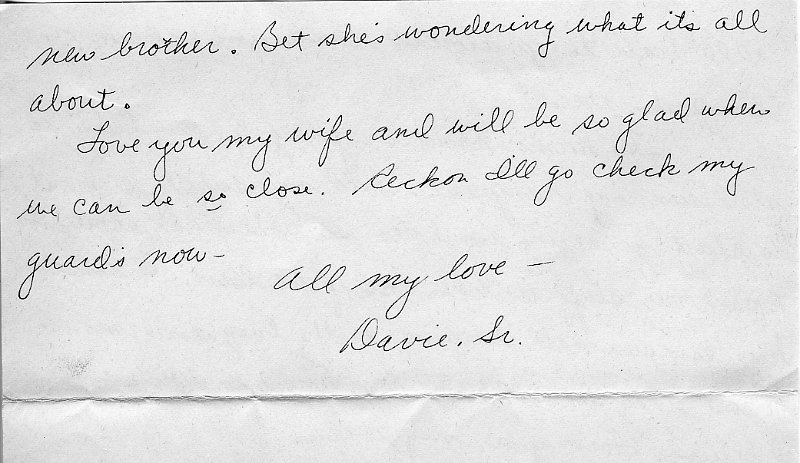 new brother. Bet she's wondering what its all
about.
Love you my wife and will be so glad when
we can be so close. Reckon I'll go check my
guards now—
All my love —
Davie, Sr.